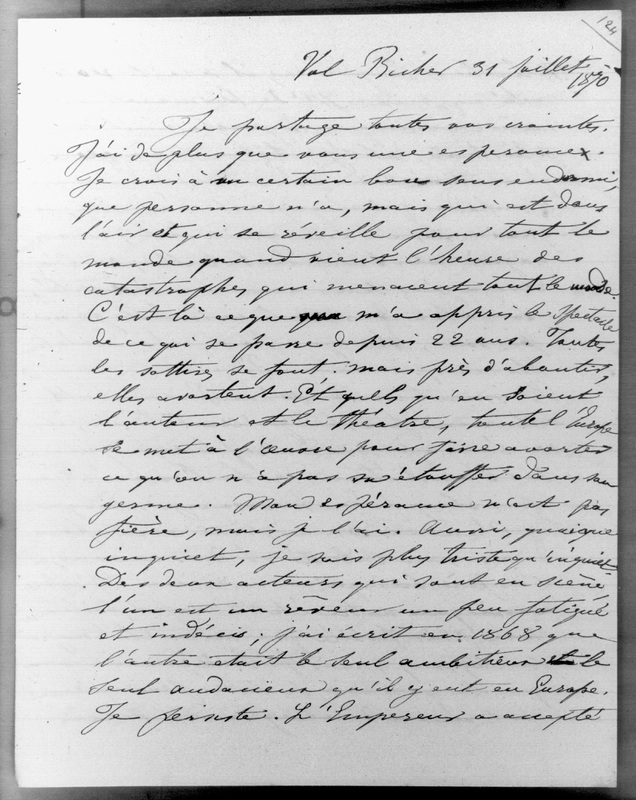 124
Val Richer 31 juillet
1870
Je partage toutes vos craintes.
J'ai de plus que vous une esperance.
Je crois à un certain bon sens endormi,
que personne n'a, mais qui est dans
l'air et qui se réveille pour tout le
monde quand vient l'heure des
catastrophes qui menacent tout le monde.
C'est là ce que m'a appris le spectacle
de ce qui se passe depuis 22 ans. Toutes
les sottises se font. mais près d'aboutir,
elles avortent. Et quels qu'en soient
l'auteur et le théatre, toute l'Europe
se met à l'œuvre pour faire avorter
ce qu'on n'a pas su étouffer dans son
germe. Mon espérance n'est pas
fière, mais je l'ai. Aussi, quoique
inquiet, je suis plus triste qu'inquiet.
Des deux acteurs qui sont en scène
l'un est un rêveur un peu fatigué
et indécis; j'ai écrit en 1868 que
l'autre etait le seul ambitieux et le
seul audacieux qu'il y eut en Europe.
Je persiste. L'Empereur a accepté